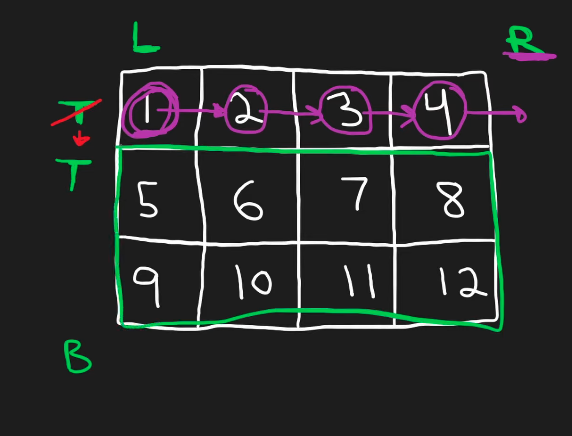 L R
T 1 2 3 4
T 5 6 7 8
9 10 11 12
B